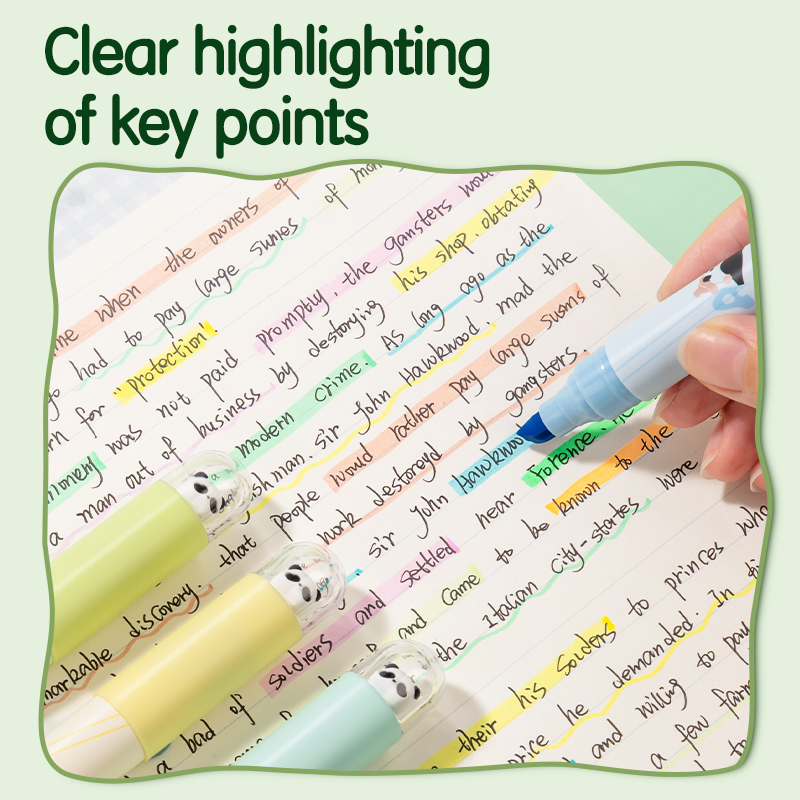 Clear highlighting
of key points
me when the owners of
of mon
to had to pay large sumes
promptly. the gansters would
for "protection".
his shop. obtating
was not paid
As long ago as the
of business by destorying
mad the
modern crime.
a man out
sir John Hawkwood.
would rather pay large susms of
shman.
that people
work destoroyd by gangsters.
sir John Hawkwoo
near Forence.
to be known to the
soldiers and settled
and came
the Italian city-states were
discovery.
markable
to princes who
a bad of
their his soiders
he demanded. In
and willing to pay
a few farm